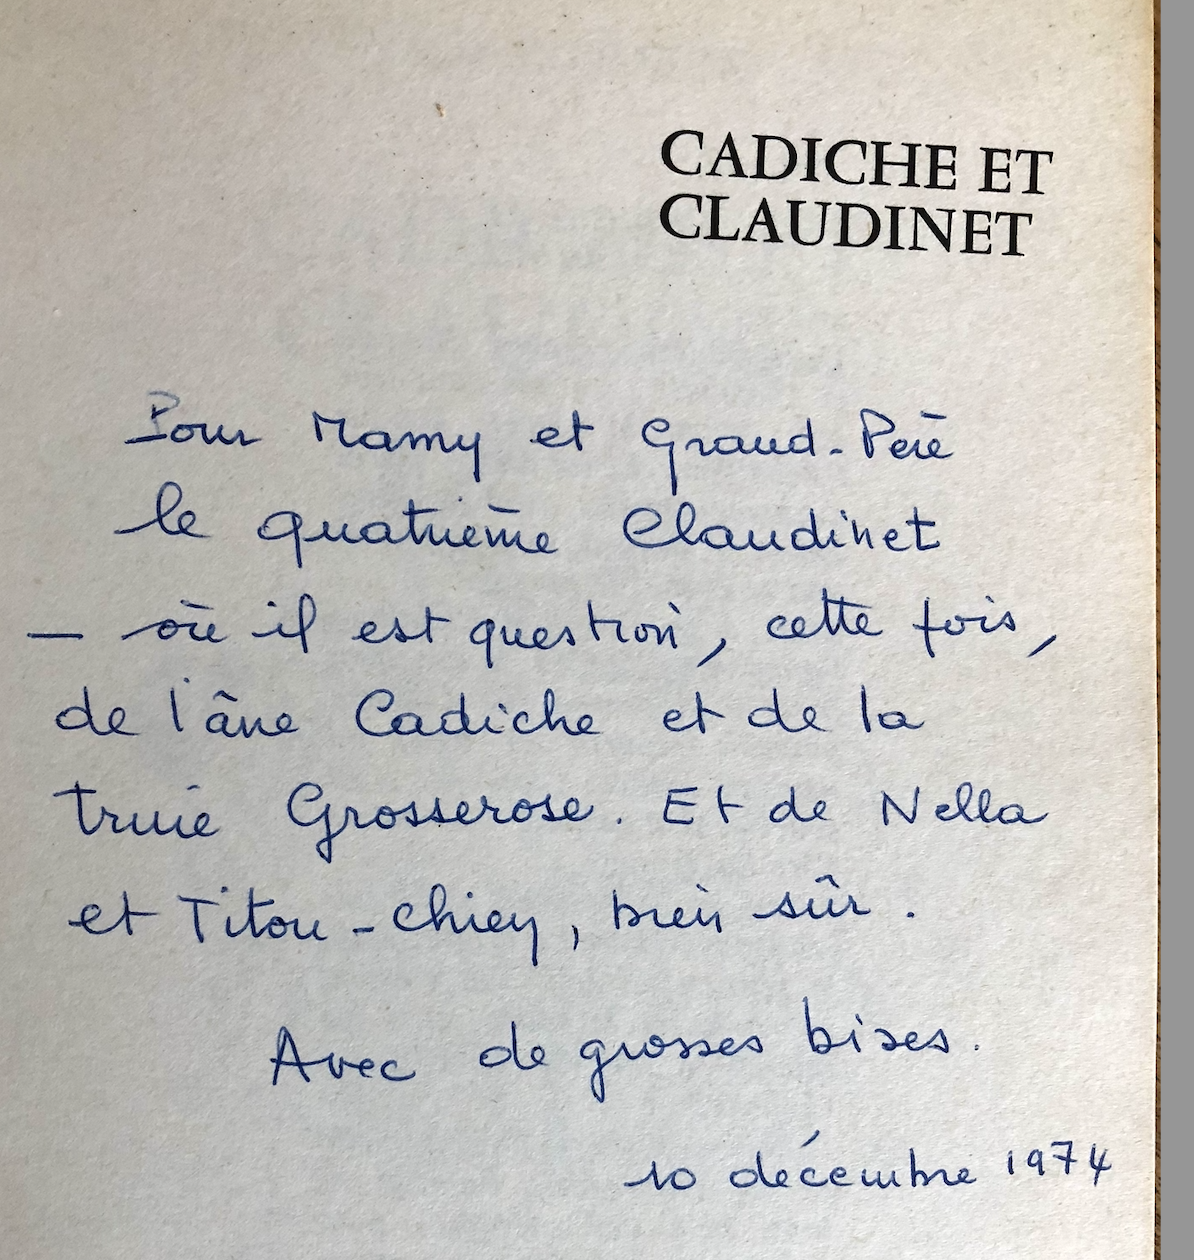 CADICHE ET
CLAUDINET
Pour Mamy et Grand-Père
le quatrième Claudinet
— où il est question, cette fois,
de l'âne Cadiche et de la
truie Grosserose. Et de Nella
et Titou-chien, bien sûr.
Avec de grosses bises.
10 décembre 1974